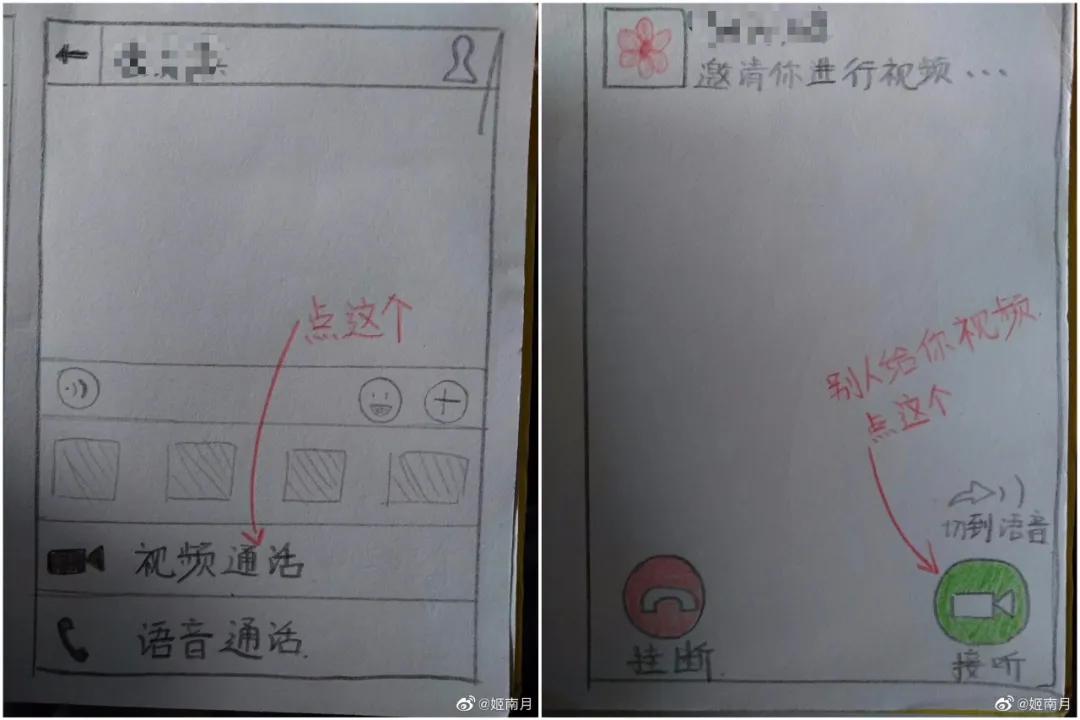 点这个
视频通话
语音通话
@姬南月
邀请你进行视频...
别人给你视频
点这个
切到语音
挂断
接听
@姬南月